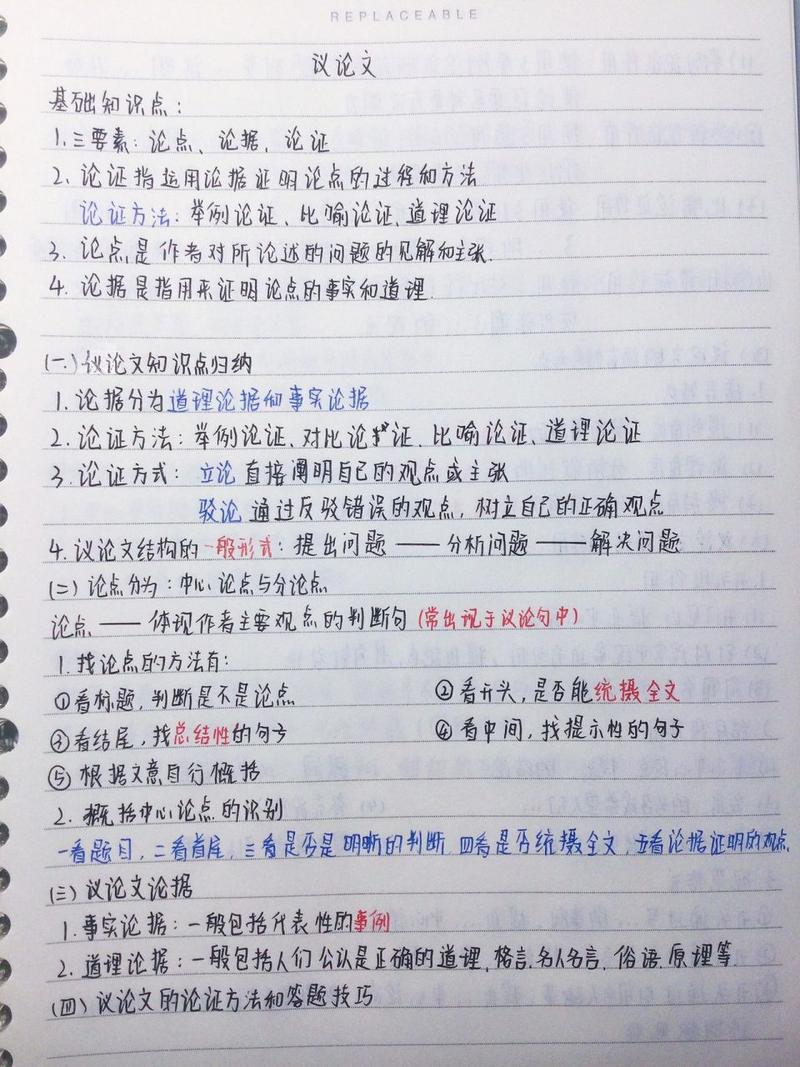 REPLACEABLE
议论文
基础知识点：
1.三要素：论点、论据、论证
2.论证指运用论据证明论点的过程和方法
论证方法：举例论证、比喻论证、道理论证
3.论点是作者对所论述的问题的见解和主张.
4.论据是指用来证明论点的事实和道理.
(一)议论文知识点归纳
1.论据分为道理论据和事实论据
2.论证方法：举例论证、对比论证、比喻论证、道理论证
3.论证方式：立论 直接阐明自己的观点或主张
驳论 通过反驳错误的观点，树立自己的正确观点
4.议论文结构的一般形式：提出问题——分析问题——解决问题
(二)论点分为：中心论点与分论点
论点——体现作者主要观点的判断句(常出现于议论句中)
1.找论点的方法有：
①看标题，判断是不是论点 ②看开头，是否能统摄全文
③看结尾，找总结性的句子 ④看中间，找提示性的句子
⑤根据文意自行概括
2.概括中心论点的识别
一看题目，二看首尾，三看是否是明晰的判断，四看是否统摄全文，五看论据证明的观点.
(三)议论文论据
1.事实论据：一般包括代表性的事例
2.道理论据：一般包括人们公认是正确的道理、格言、名人名言、俗语、原理等.
(四)议论文的论证方法和答题技巧